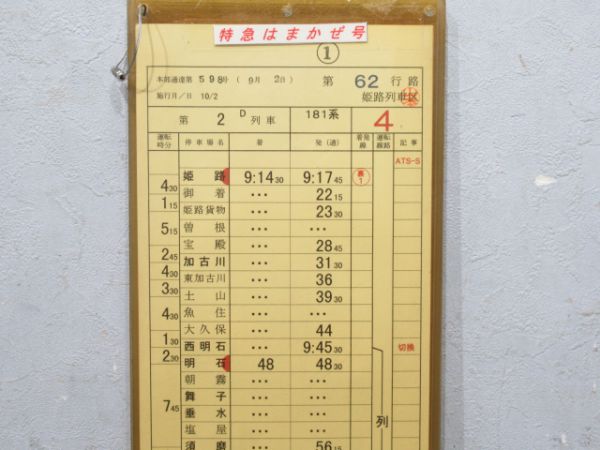 特急はまかぜ号
①
本部通達第 598号 ( 9月 2日) 第 62 行路
施行月/日 10/2 姫路列車区
第 2 D 列車 181系 4
運転時分 停車場名 着 発(通) 着発線 運転線路 記事
ATS-S
姫路 9:14 30 9:17 45 1
4 30
御着 ・・・ 22 15
1 15
姫路貨物 ・・・ 23 30
5 15
曽根 ・・・ ・・・
宝殿 ・・・ 28 45
2 45
加古川 ・・・ 31 30
4 30
東加古川 ・・・ 36
3 30
土山 ・・・ 39 30
4 30
魚住 ・・・ ・・・
大久保 ・・・ 44
1 30
西明石 ・・・ 9:45 30 切換
2 30
明石 48 48 30
朝霧 ・・・ ・・・
舞子 ・・・ ・・・
7 45
垂水 ・・・ ・・・ 列
塩屋 ・・・ ・・・
須磨 ・・・ 56 15